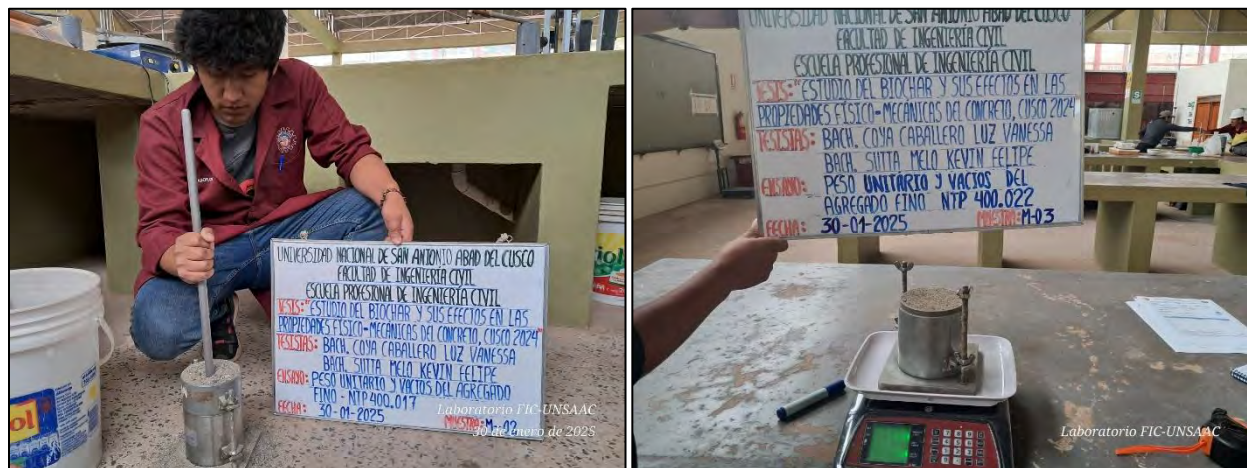 UNIVERSIDAD NACIONAL DE SAN ANTONIO ABAD DEL CUSCO
FACULTAD DE INGENIERÍA CIVIL
ESCUELA PROFESIONAL DE INGENIERÍA CIVIL
TESIS: "ESTUDIO DEL BIOCHAR Y SUS EFECTOS EN LAS
PROPIEDADES FÍSICO-MECÁNICAS DEL CONCRETO, CUSCO 2024"
TESISTAS: BACH. COYA CABALLERO LUZ VANESSA
BACH. SUTTA MELO KEVIN FELIPE
ENSAYO: PESO UNITARIO Y VACIOS DEL AGREGADO
FINO - NTP 400.017
FECHA: 30-01-2025 MUESTRA: M-02
Laboratorio FIC-UNSAAC
30 de enero de 2025
UNIVERSIDAD NACIONAL DE SAN ANTONIO ABAD DEL CUSCO
FACULTAD DE INGENIERÍA CIVIL
ESCUELA PROFESIONAL DE INGENIERÍA CIVIL
TESIS: "ESTUDIO DEL BIOCHAR Y SUS EFECTOS EN LAS
PROPIEDADES FÍSICO-MECÁNICAS DEL CONCRETO, CUSCO 2024
TESISTAS: BACH. COYA CABALLERO LUZ VANESSA
BACH. SUTTA MELO KEVIN FELIPE
ENSAYO: PESO UNITARIO Y VACIOS DEL
AGREGADO FINO NTP 400.022
FECHA: 30-01-2025 MUESTRA: M-03
S
Laboratorio FIC-UNSAAC